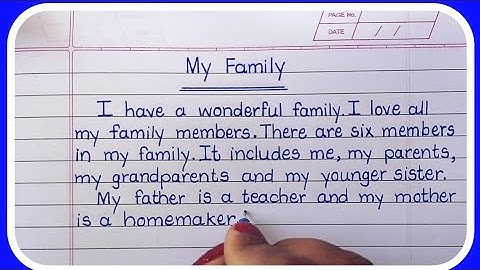 PAGE No.
DATE
My Family
I have a wonderful family. I love all
my family members. There are six members
in my family. It includes me, my parents,
my grandparents and my younger sister.
My father is a teacher and my mother
is a homemaker.